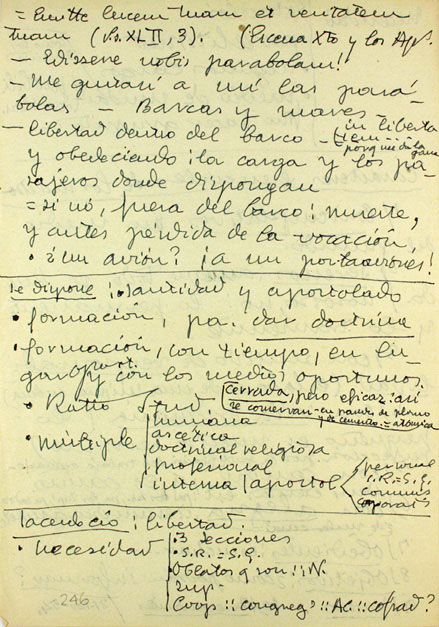 = Emitte lucem tuam et veritatem
tuam (Ps. XLII, 3). (Escena Xto y los Ap.
- Edissere nobis parabolam!
- Me gustan a mí las pará-
bolas - Barcas y mares -
- libertad dentro del barco - mi liberta
porque me da la gana
y obedeciendo: la carga y los pa-
sajeros donde dispongan
= si nó, fuera del barco: muerte,
y antes pérdida de la vocación,
• ¿un avión? ¡a un portaaviones!
Se dispone: • santidad y apostolado
• formación, pa. dar doctrina
• formación, con tiempo, en lu-
gar oport. y con los medios oportunos.
• Ratio Stud. cerrada, pero eficaz: así
se conservan - en panes de plomo
y de cemento = atómica
• múltiple humana
ascética
doctrinal religiosa
profesional
interna | apostol. personal
S.R. = S.G.
commis
corporat
Sacerdocio: libertad.
• necesidad • 3 secciones
• S.R. = S.G.
• Oblatos y son :: N.
• Sup.
Coop :: congreg :: AC :: cofrad?
246